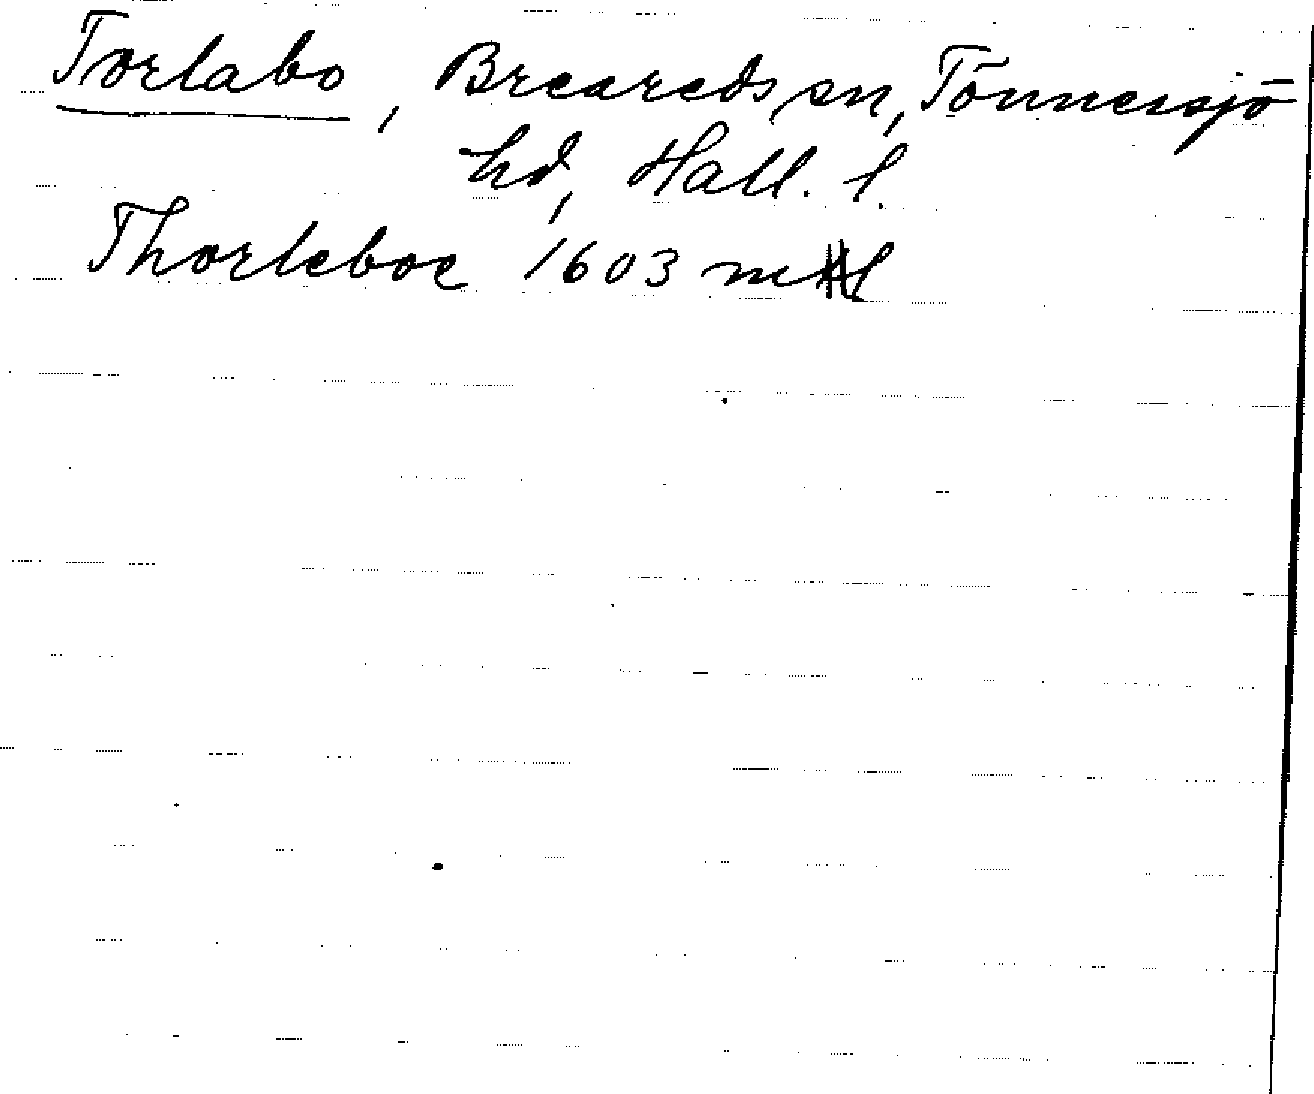 Torlabo, Breareds sn, Tönnersjö
hd, Hall. l.
Thorleboe 1603